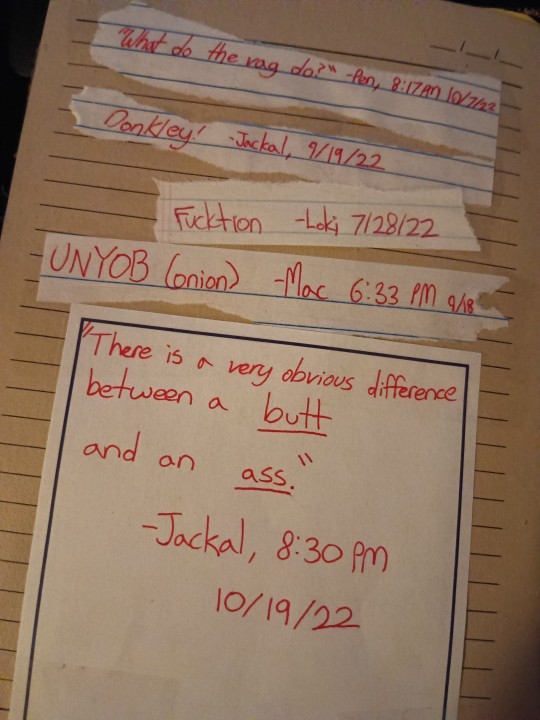 "What do the rag do?" -Pen, 8:17AM 10/7/22
Donkley! -Jackal, 9/19/22
Fucktion -Loki, 7/28/22
UNYOB (onion) -Mac 6:33 PM 9/18
"There is a very obvious difference
between a butt
and an ass."
-Jackal, 8:30 PM
10/19/22